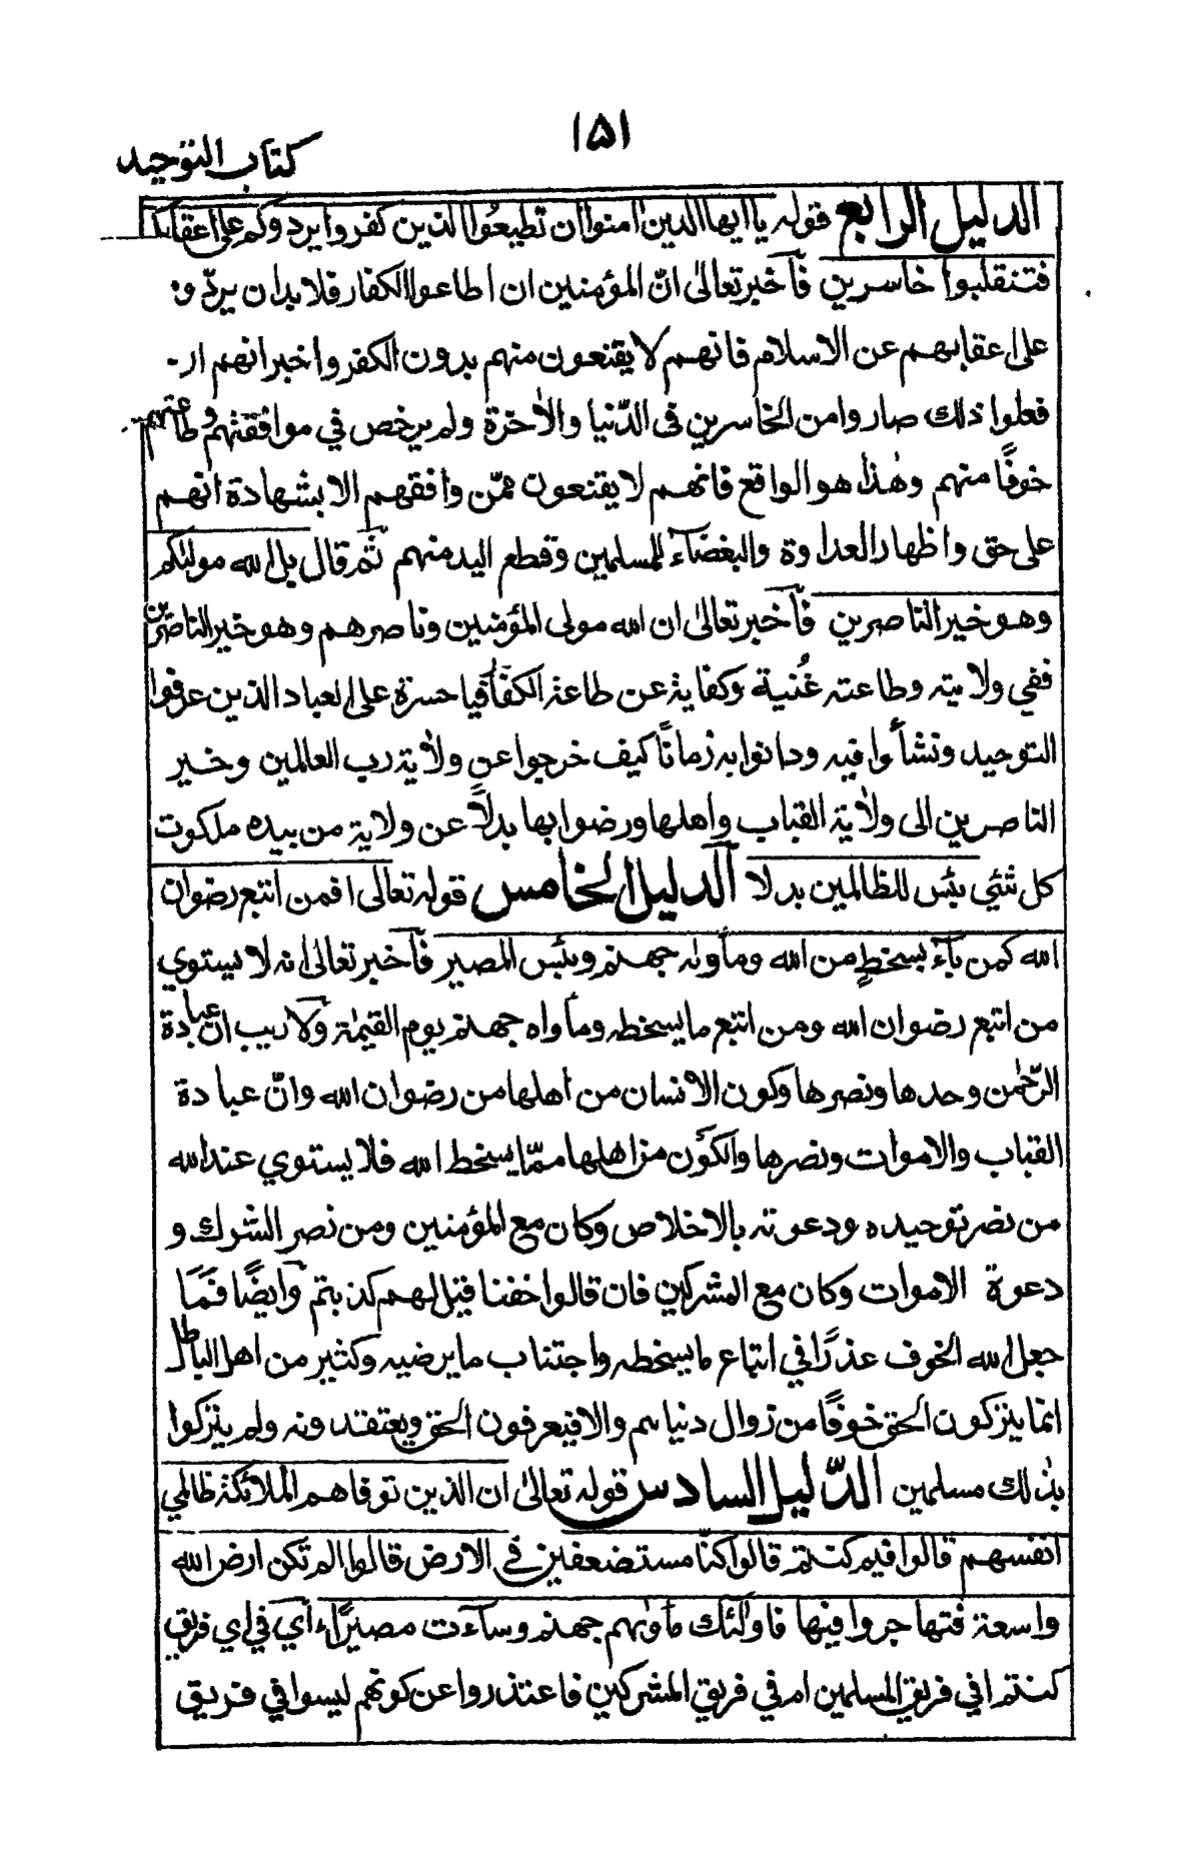 ١٥١
كتاب التوحيد
الدليل الرابع قوله يا ايها الذين امنوا ان تطيعوا الذين كفروا يردوكم على اعقابكم
فتنقلبوا خاسرين فأخبر تعالىٰ انّ المؤمنين ان اطاعوا الكفار فلا بد ان يردّوهم
على اعقابهم عن الاسلام فانهم لا يقنعون منهم بدون الكفر واخبر انهم ان
فعلوا ذلك صاروا من الخاسرين فى الدّنيا والاٰخرة ولم يرخص في موافقتهم وطاعتهم
خوفًا منهم وهٰذا هو الواقع فانهم لا يقنعون ممّن وافقهم الا بشهادة انهم
على حق واظهار العداوة والبغضاء للمسلمين وقطع اليد منهم ثم قال بل الله مولٰىكم
وهو خير الناصرين فأخبر تعالىٰ ان الله مولى المؤمنين وناصرهم وهو خير الناصرين
ففي ولايته وطاعته غُنية وكفاية عن طاعة الكفار فيا حسرة على العباد الذين عرفوا
التوحيد ونشأوا فيه ودانوا به زمانًا كيف خرجوا عن ولاٰية رب العالمين وخير
الناصرين الى ولاٰية القباب واهلها ورضوا بها بدلًا عن ولاية من بيده ملكوت
كل شئي بئس للظالمين بدلا الدليل الخامس قوله تعالى افمن اتبع رضوان
الله كمن باء بسخطٍ من الله ومأوٰىه جهنم وبئس المصير فأخبر تعالىٰ انه لا يستوي
من اتبع رضوان الله ومن اتبع ما يسخطه ومأواه جهنم يوم القيٰمة ولا ريب ان عبادة
الرّحمٰن وحدها ونصرها وكون الانسان من اهلها من رضوان الله وانّ عبادة
القباب والاموات ونصرها والكون من اهلها ممّا يسخط الله فلا يستوي عند الله
من نصر توحيده ودعوته بالاخلاص وكان مع المؤمنين ومن نصر الشرك و
دعوة الاموات وكان مع المشركين فان قالوا خفنا قيل لهم كذبتم وايضًا فمَا
جعل الله الخوف عذرًا في اتباع ما يسخطه واجتناب ما يرضيه وكثير من اهل الباطل
انما يتركون الحق خوفًا من زوال دنياهم والا فيعرفون الحق ويعتقدونه ولم يتركوا
بذٰلك مسلمين الدّليل السادس قوله تعالىٰ ان الذين توفاهم الملائكة ظالمي
انفسهم قالوا فيم كنتم قالوا كنّا مستضعفين في الارض قالوا الم تكن ارض الله
واسعة فتهاجروا فيها فاولٰئك مأوٰىهم جهنم وساءت مصيرًا، أي في اي فريق
كنتم افي فريق المسلمين ام في فريق المشركين فاعتذروا عن كونهم ليسوا في فريق